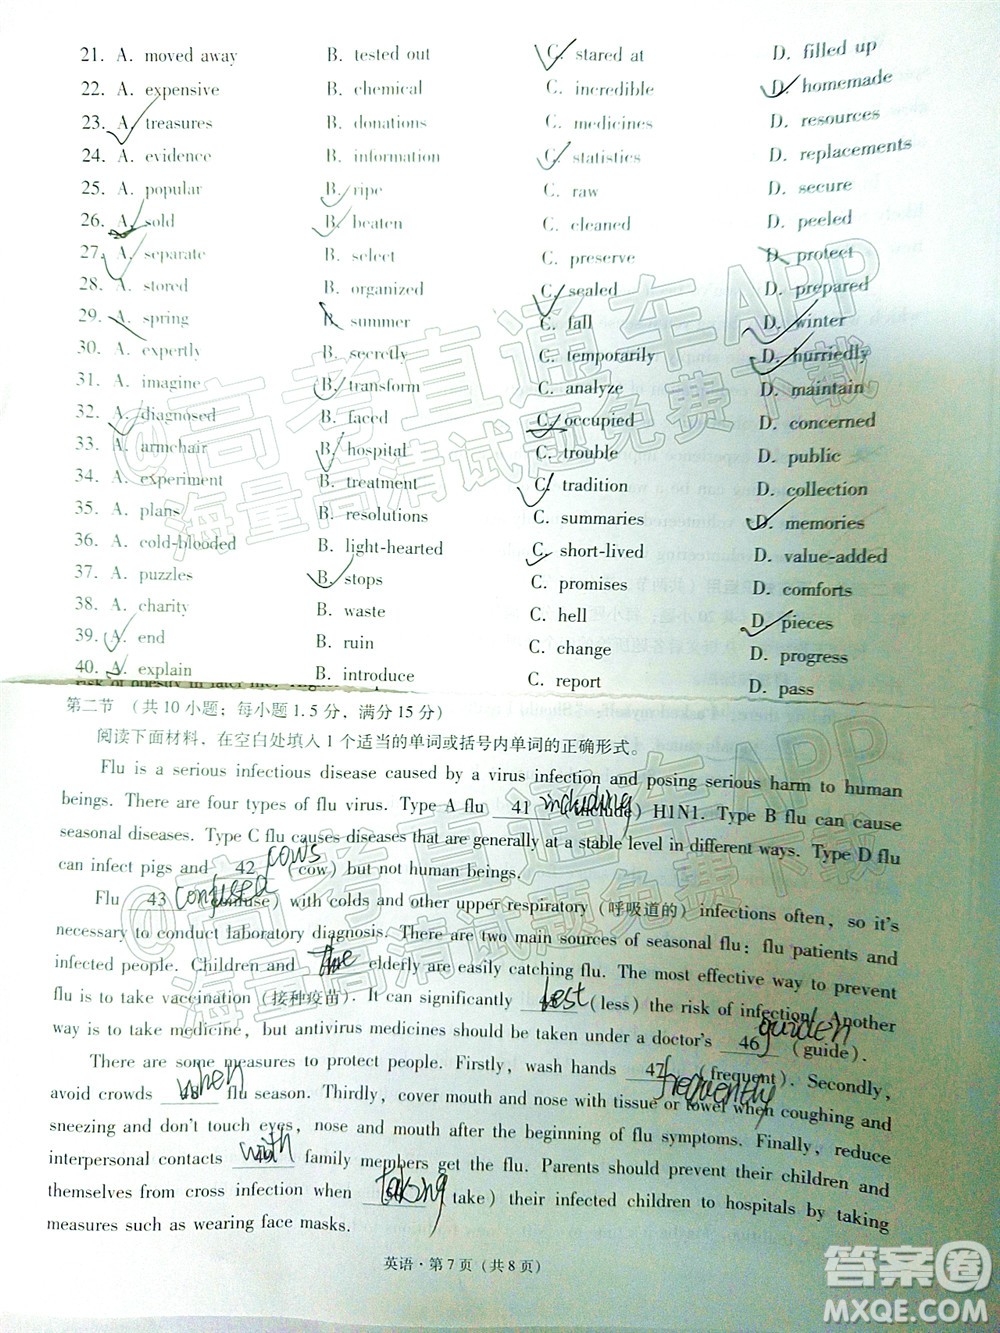 21. A. moved away B. tested out C. stared at D. filled up
22. A. expensive B. chemical C. incredible D. homemade
23. A. treasures B. donations C. medicines D. resources
24. A. evidence B. information C. statistics D. replacements
25. A. popular B. ripe C. raw D. secure
26. A. sold B. beaten C. cleaned D. peeled
27. A. separate B. select C. preserve D. protect
28. A. stored B. organized C. sealed D. prepared
29. A. spring B. summer C. fall D. winter
30. A. expertly B. secretly C. temporarily D. hurriedly
31. A. imagine B. transform C. analyze D. maintain
32. A. diagnosed B. faced C. occupied D. concerned
33. A. armchair B. hospital C. trouble D. public
34. A. experiment B. treatment C. tradition D. collection
35. A. plans B. resolutions C. summaries D. memories
36. A. cold-blooded B. light-hearted C. short-lived D. value-added
37. A. puzzles B. stops C. promises D. comforts
38. A. charity B. waste C. hell D. pieces
39. A. end B. ruin C. change D. progress
40. A. explain B. introduce C. report D. pass
第二节 (共 10 小题; 每小题 1.5 分, 满分 15 分)
阅读下面材料, 在空白处填入 1 个适当的单词或括号内单词的正确形式。
Flu is a serious infectious disease caused by a virus infection and posing serious harm to human
beings. There are four types of flu virus. Type A flu 41 including (include) H1N1. Type B flu can cause
seasonal diseases. Type C flu causes diseases that are generally at a stable level in different ways. Type D flu
can infect pigs and 42 cows (cow) but not human beings.
Flu 43 confused (confuse) with colds and other upper respiratory (呼吸道的) infections often, so it's
necessary to conduct laboratory diagnosis. There are two main sources of seasonal flu: flu patients and
infected people. Children and the elderly are easily catching flu. The most effective way to prevent
flu is to take vaccination (接种疫苗). It can significantly best (less) the risk of infection. Another
way is to take medicine, but antivirus medicines should be taken under a doctor's 46 guiden (guide).
There are some measures to protect people. Firstly, wash hands 47 frequently (frequent). Secondly,
avoid crowds when flu season. Thirdly, cover mouth and nose with tissue or towel when coughing and
sneezing and don't touch eyes, nose and mouth after the beginning of flu symptoms. Finally, reduce
interpersonal contacts with family members get the flu. Parents should prevent their children and
themselves from cross infection when taking (take) their infected children to hospitals by taking
measures such as wearing face masks.
英语·第 7 页 (共 8 页)
@高考直通车APP
海量高清试题免费下载
@高考直通车APP
海量高清试题免费下载
答案圈
MXQE.COM